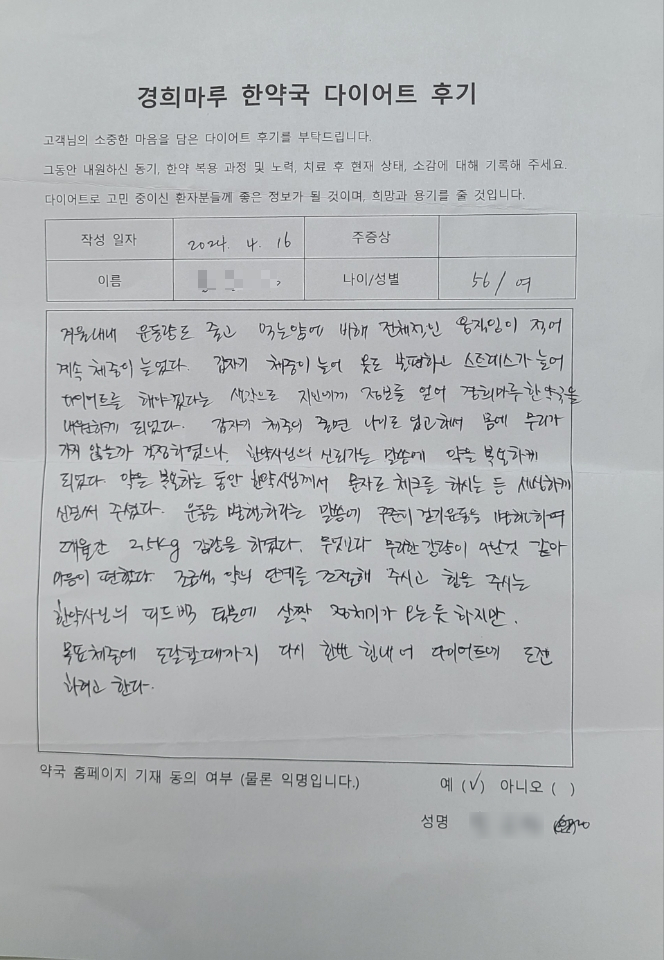 경희마루 한약국 다이어트 후기
고객님의 소중한 마음을 담은 다이어트 후기를 부탁드립니다.
그동안 내원하신 동기, 한약 복용 과정 및 노력, 치료 후 현재 상태, 소감에 대해 기록해 주세요.
다이어트로 고민 중이신 환자분들께 좋은 정보가 될 것이며, 희망과 용기를 줄 것입니다.
작성 일자 2024. 4. 16 주증상
이름 나이/성별 56/여
겨울내내 운동량도 줄고 먹는양에 비해 전체적인 움직임이 적어
계속 체중이 늘었다. 갑자기 체중이 늘어 옷도 불편하고 스트레스가 늘어
다이어트를 해야겠다는 생각으로 지인에게 정보를 얻어 경희마루한약국을
내원하게 되었다. 갑자기 체중이 줄면 나이도 있고해서 몸에 무리가
가지 않을까 걱정하였으나, 한약사님의 신뢰가는 말씀에 약을 복용하게
되었다. 약을 복용하는 동안 한약사님께서 문자로 체크를 하시는 등 세심하게
신경써 주셨다. 운동을 병행하라는 말씀에 꾸준히 걷기운동을 병행하며
2.5kg 감량을 하였다. 무엇보다 무리한 감량이 아닌것 같아
마음이 편했다. 조금씩 약의 단계를 조절해 주시고 힘을 주시는
한약사님의 피드백 덕분에 살짝 정체기가 오는듯 하지만,
목표체중에 도달할때까지 다시 한번 힘내어 다이어트에 도전
하려고 한다.
약국 홈페이지 기재 동의 여부 (물론 익명입니다.) 예 (√) 아니오 ( )
성명